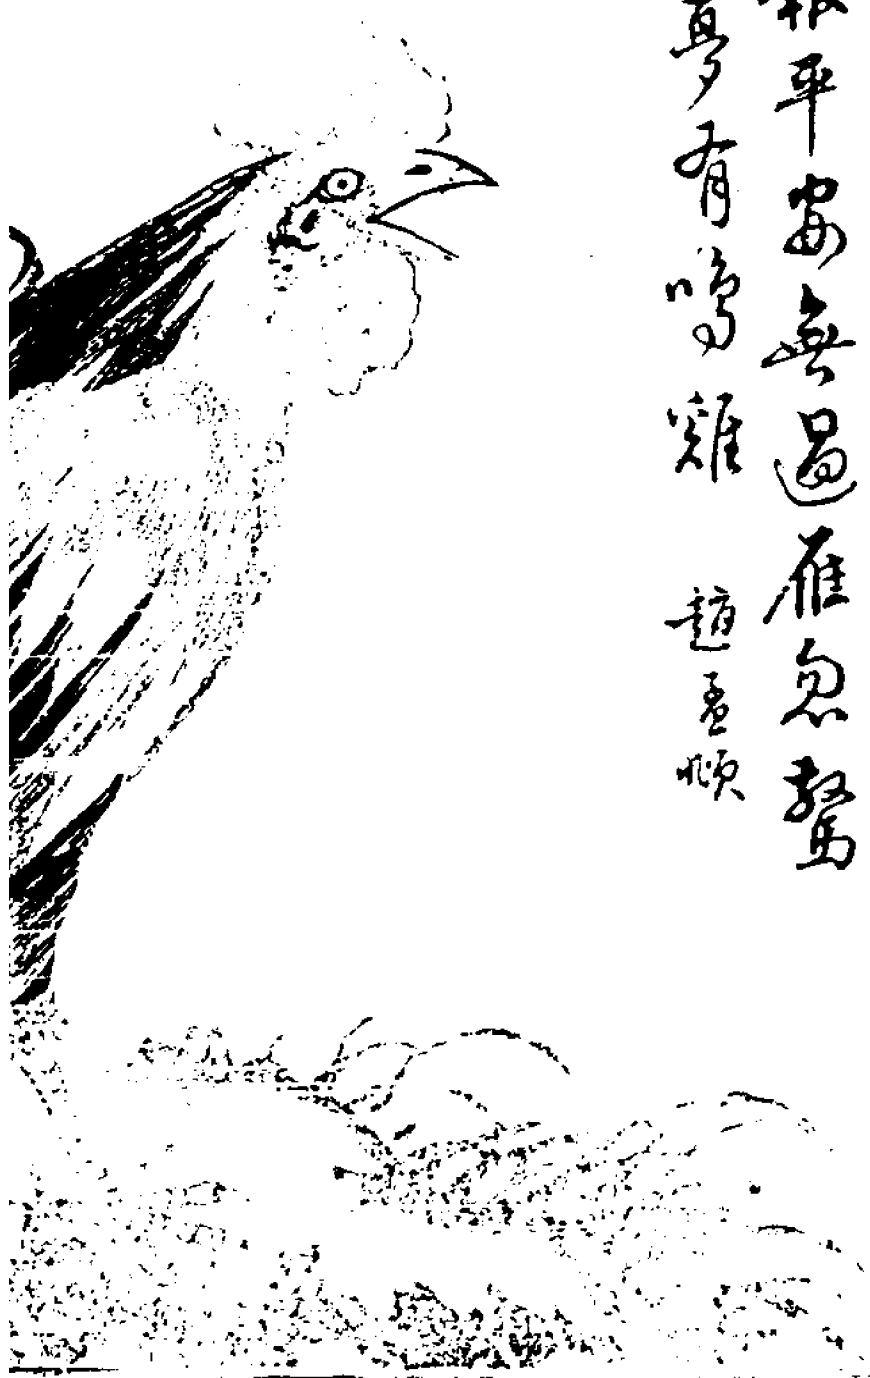 報平安無過雁忽驚
夢有鳴雞 趙孟頫